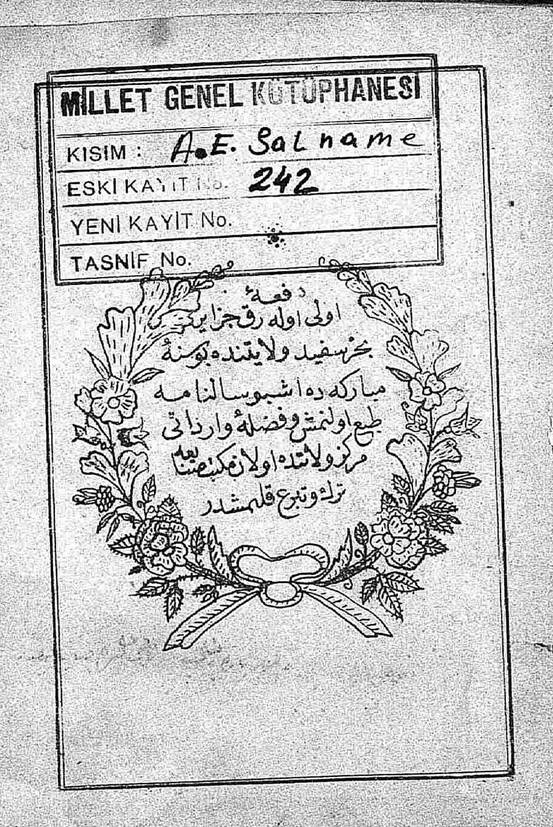 MİLLET GENEL KÜTÜPHANESİ
KISIM : A.E. Salname
ESKİ KAYIT No. 242
YENİ KAYİT No.
TASNİF No.
دفعهٔ
اولی اوله رق جزایر
بحر سفید ولایتنده بو سنهٔ
مباركه ده اشبو سالنامه
طبع اولنمش و فضلهٔ وارداتی
مركز ولایتده اولان مكتب صنایعه
ترك و تبرع قلنمشدر